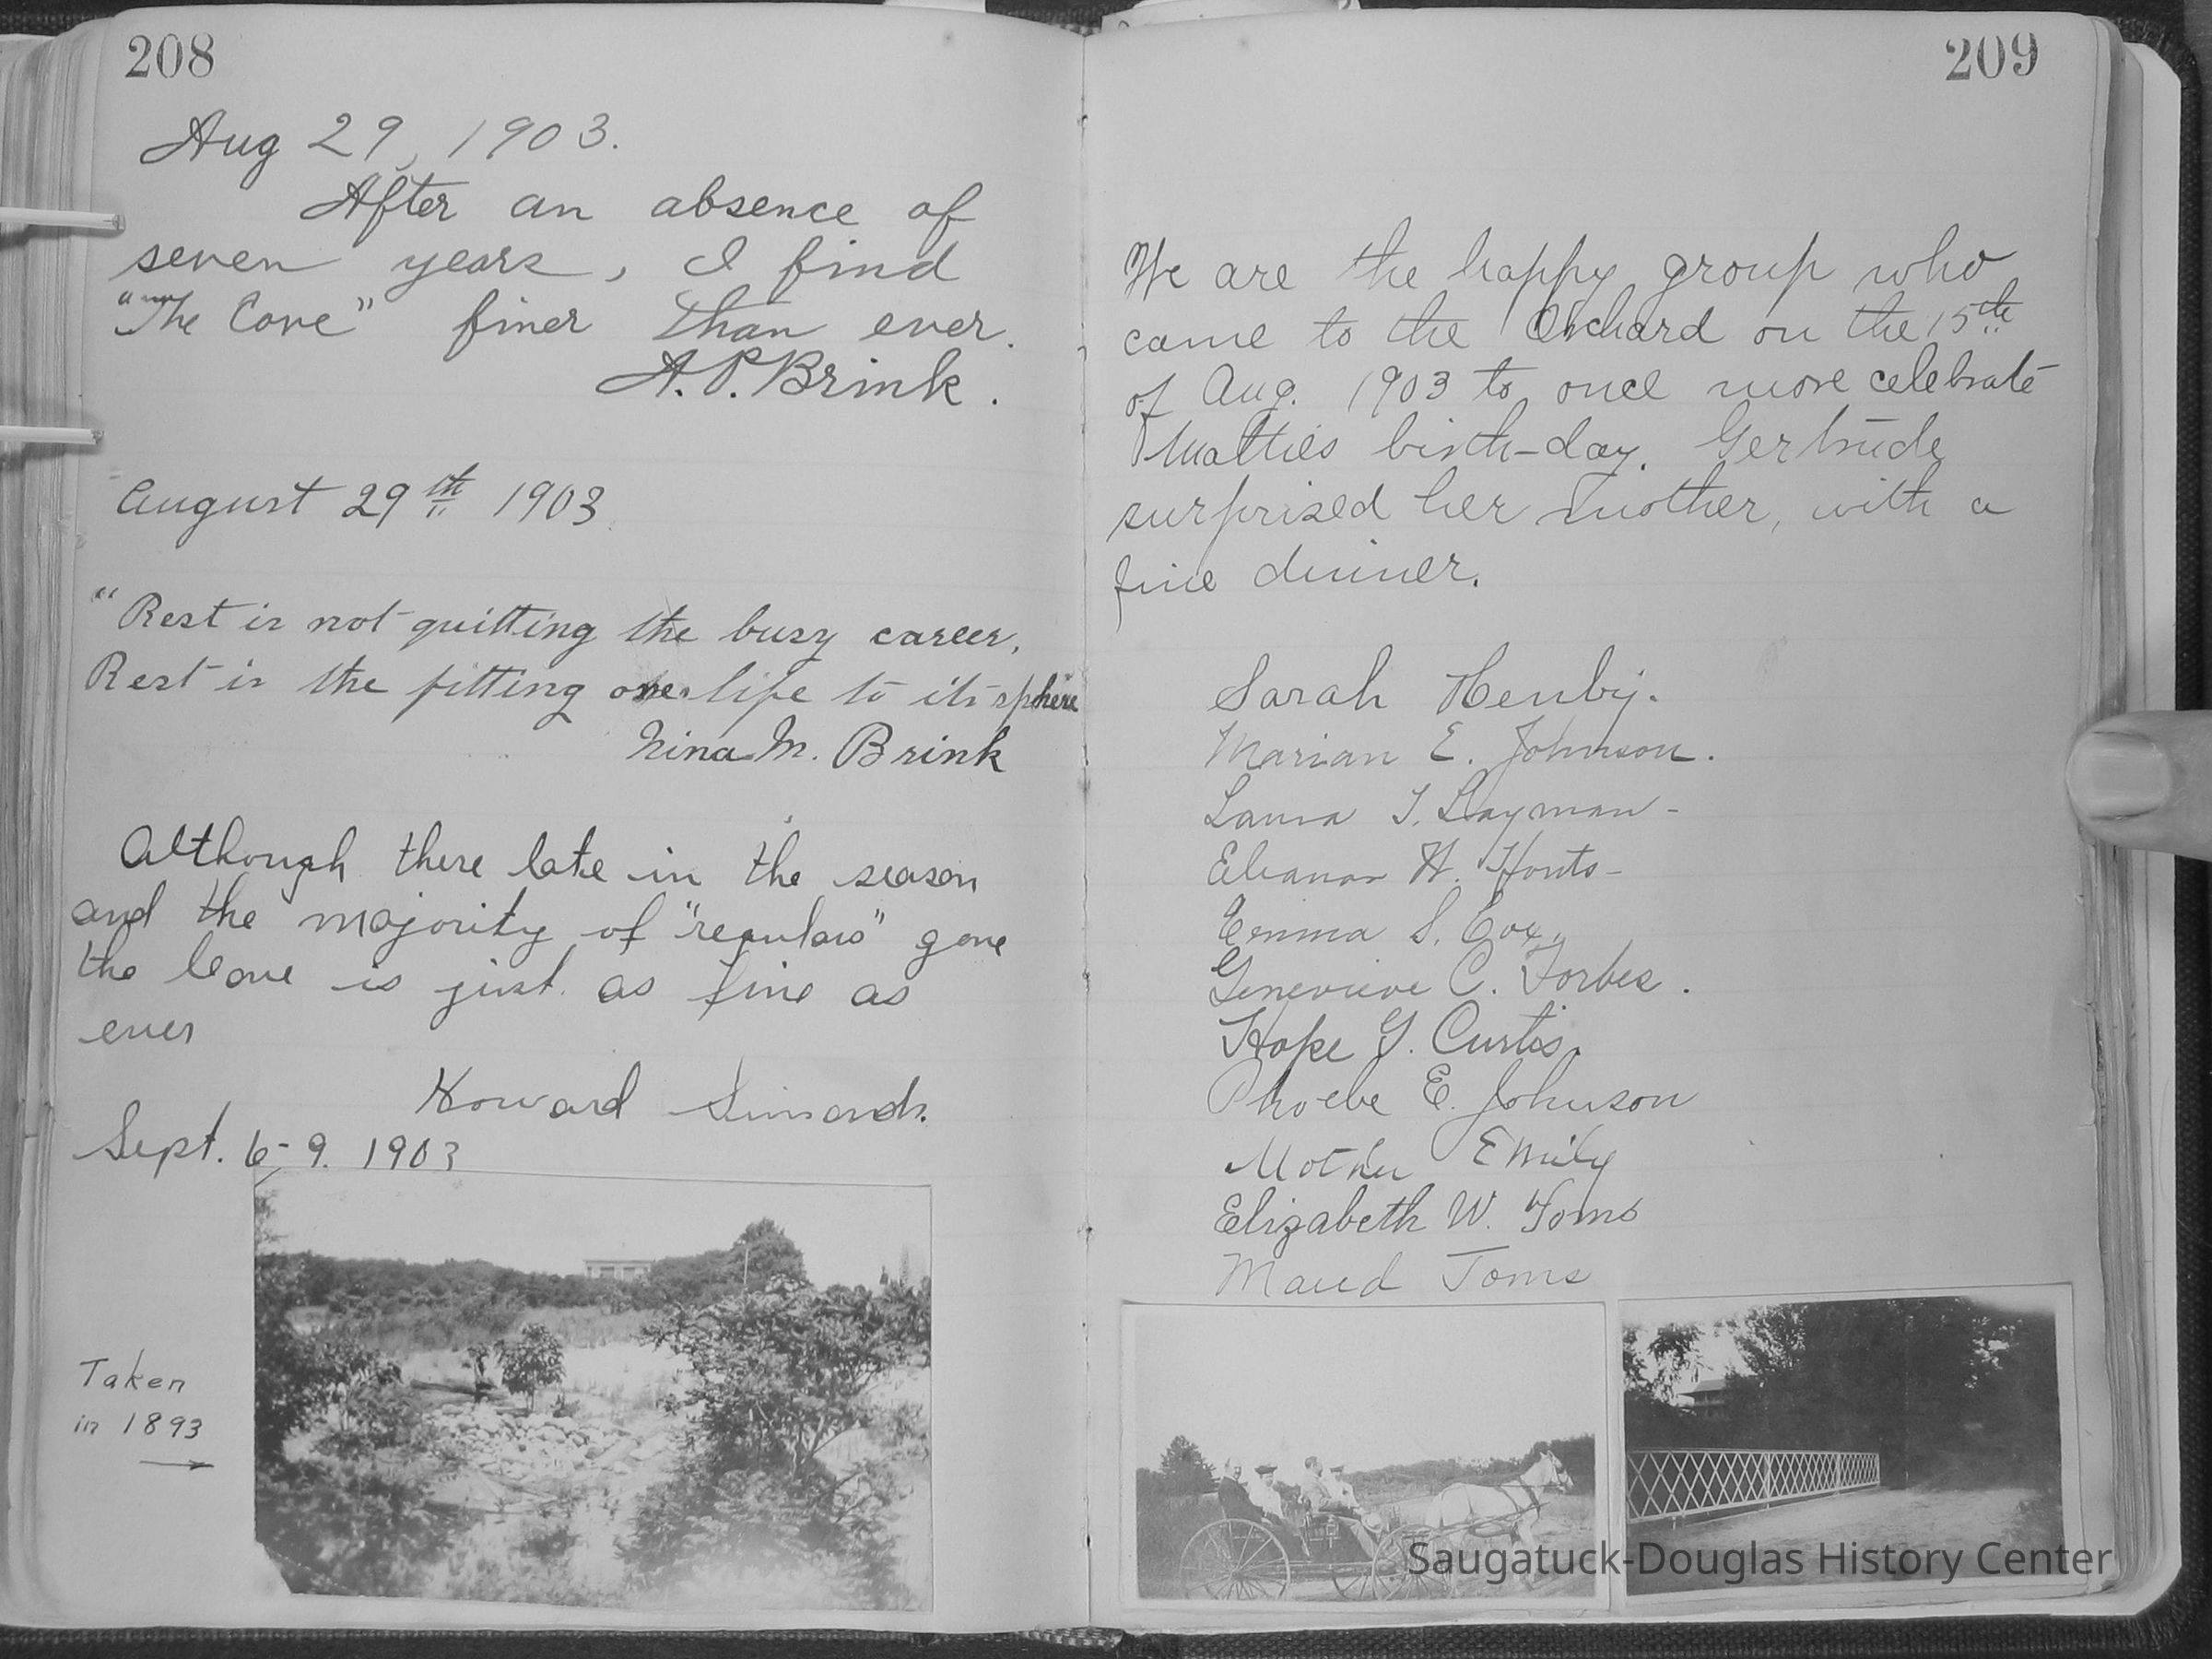 208
Aug 29, 1903.
After an absence of
seven years, I find
"The Cove" finer than ever.
A. P. Brink.
August 29th 1903
"Rest is not quitting the busy career,
Rest is the fitting one's life to its sphere
Nina M. Brink
Although there late in the season
and the majority of "regulars" gone
the Cove is just as fine as
ever
Howard Simonds.
Sept. 6-9. 1903
Taken
in 1893
209
We are the happy group who
came to the Orchard on the 15th
of Aug. 1903 to once more celebrate
Matties birth-day. Gertrude
surprised her mother, with a
fine dinner.
Sarah Henby.
Marian E. Johnson.
Laura T. Layman-
Eleanor H. Fonts-
Emma S. Cox.
Genevieve C. Forbes.
Hope G. Curtis.
Phoebe E. Johnson
Mother Emily
Elizabeth W. Toms
Maud Toms
Saugatuck-Douglas History Center